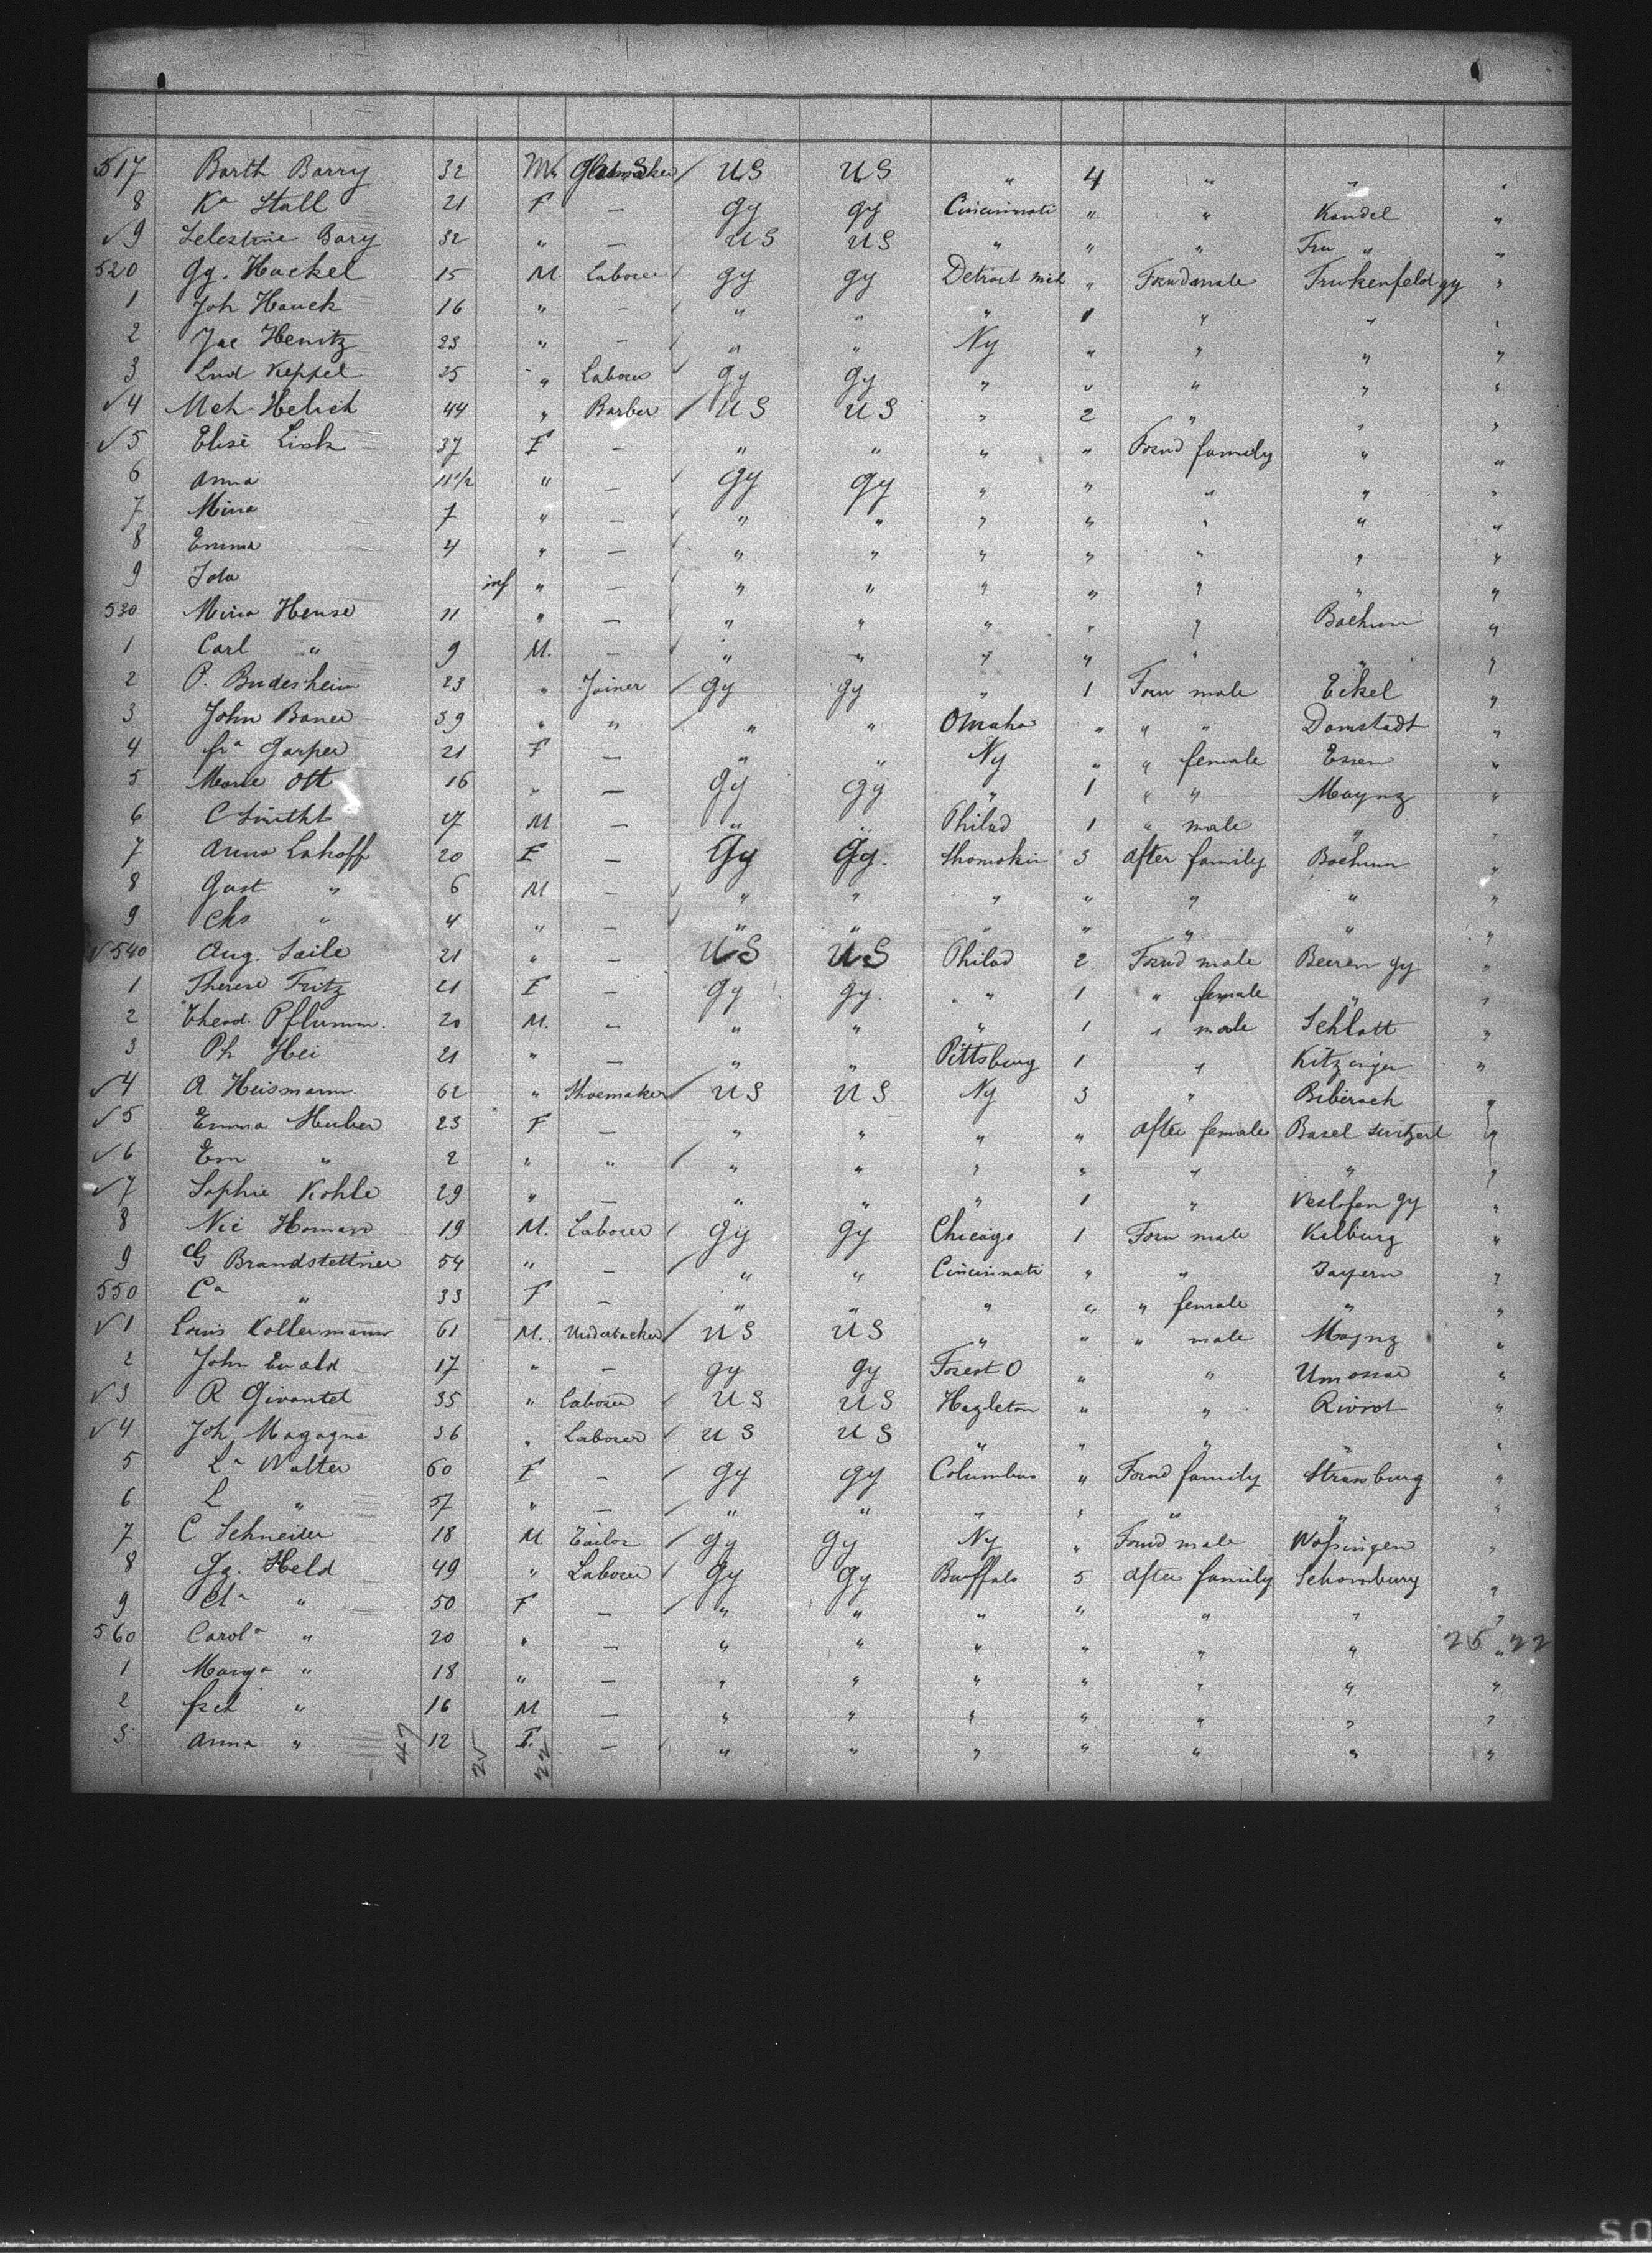 517 Barth Barry 32 M. US US " 4 " " "
8 Ka Stall 21 F — gy gy Cincinnati " " Kandel "
√9 Selestine Bary 32 " — US US " " " "
520 Gg. Hackel 15 M. Laborer gy gy Detroit Mich " gy "
1 Joh Hauck 16 " — " " " 1 " " "
2 Jac Henitz 23 " — " " Ny " " " "
3 Lud Keppel 25 " Laborer gy gy " " " " "
√4 Mch Helich 44 " Barber US US " 2 " " "
√5 Elise Lick 37 F — " " " " Forwd family " "
6 Anna 11 1/2 " — gy gy " " " " "
7 Mina 7 " — " " " " " " "
8 Emma 4 " — " " " " " " "
9 Ida inf " — " " " " " " "
530 Mina Hense 11 " — " " " " " Bochum "
1 Carl " 9 M. — " " " " " " "
2 P. Budesheim 23 " Joiner gy gy " 1 Forw male Eckel "
3 John Baner 39 " " " " Omaha " " " Damstadt "
4 fra Garper 21 F — " " Ny " " female Essen "
5 Marie Ott 16 " — gy gy " 1 " " Maynz "
6 C 17 M — " " Philad 1 " male " "
7 Anna Lahoff 20 F — Gy Gy. Shamokin 3 after family Bochum "
8 Gust " 6 M — " " " " " " "
9 Chs " 4 " — " " " " " " "
√540 Aug. Saile 21 " — US US Philad 2 Forwd male Beeren gy "
1 Therese Fritz 21 F — gy gy. " 1 " female " "
2 Theod. Pflumm. 20 M. — " " " 1 " male Schlatt "
3 Ph Hei 21 " — " " Pittsburg 1 " Kitzingen "
√4 A Heismann. 62 " Shoemaker US US Ny 3 " Biberach "
√5 Emma Huber 23 F — " " " " after female Basel "
√6 Em " 2 " " " " " " " " "
√7 Sophie Kohle 29 " — " " " 1 " gy "
8 Nic Homan 19 M. Laborer gy gy Chicago 1 Forw male Kalburg "
9 G Brandstettner 54 " — " " Cincinnati " " Bayern "
550 Ca " 33 F — " " " " " female " "
√1 Louis Kollermann 61 M. Undertacker US US " " " male Maynz "
2 John Ewald 17 " — gy gy Forest O " " "
√3 R Givantel 35 " Laborer US US Hazleton " " "
√4 Joh Magagna 36 " Laborer US US " " " " "
5 La Walter 60 F — gy gy Columbus " Forwd family Strassburg "
6 L " 57 " — " " " " " " "
7 C Schneider 18 M. Tailor gy gy Ny " Forwd male "
8 Gg. Held 49 " Laborer gy gy Buffalo 5 after family Schomburg "
9 " 50 F — " " " " " " "
560 Carola " 20 " — " " " " " " 25 " 22
1 Marga " 18 " — " " " " " " "
2 frch " 16 M — " " " " " " "
3 Anna " 12 F. — " " " " " " "
47 25 22